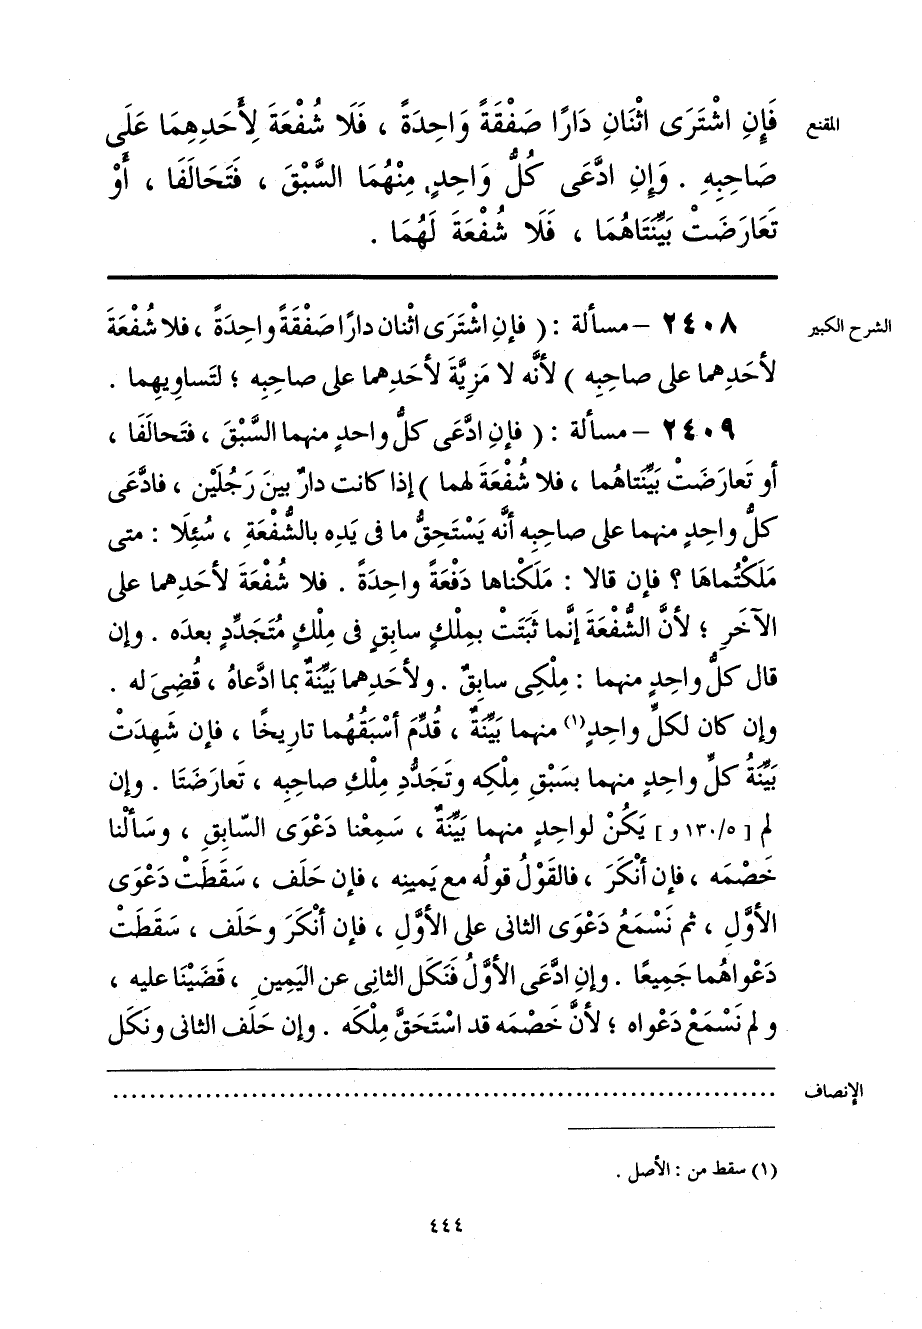 المقنع
فَإِنِ اشْتَرَى اثْنَانِ دَارًا صَفْقَةً وَاحِدَةً ، فَلَا شُفْعَةَ لِأَحَدِهِمَا عَلَى
صَاحِبِهِ . وَإِنِ ادَّعَى كُلُّ وَاحِدٍ مِنْهُمَا السَّبْقَ ، فَتَحَالَفَا ، أَوْ
تَعَارَضَتْ بَيِّنَتَاهُمَا ، فَلَا شُفْعَةَ لَهُمَا .
الشرح الكبير
٢٤٠٨ – مسألة : ( فإنِ اشْتَرَى اثْنان دارًا صَفْقَةً واحِدَةً ، فلا شُفْعَةَ
لأحَدِهما على صاحِبِه ) لأنَّه لا مَزِيَّةَ لأحَدِهما على صاحِبِه ؛ لتَساوِيهِما .
٢٤٠٩ – مسألة : ( فإنِ ادَّعَى كلُّ واحدٍ منهما السَّبْقَ ، فتَحالَفَا ،
أو تَعارَضَتْ بَيِّنَتاهُما ، فلا شُفْعَةَ لهما ) إذا كانت دارٌ بينَ رَجُلَيْن ، فادَّعَى
كلُّ واحِدٍ منهما على صاحِبِه أنَّه يَسْتَحِقُّ ما فى يَدِه بالشُّفْعَةِ ، سُئِلَا : متى
مَلَكْتُماهَا ؟ فإن قالا : مَلَكْناها دَفْعَةً واحِدَةً . فلا شُفْعَةَ لأحَدِهما على
الآخَرِ ؛ لأنَّ الشُّفْعَةَ إنَّما ثَبَتَتْ بمِلْكٍ سابِقٍ فى مِلْكٍ مُتَجَدِّدٍ بعدَه . وإن
قال كلُّ واحِدٍ منهما : مِلْكِى سابِقٌ . ولأحَدِهما بَيِّنَةٌ بما ادَّعاهُ ، قُضِىَ له .
وإن كان لكلِّ واحِدٍ(١) منهما بَيِّنَةٌ ، قُدِّمَ أسْبَقُهُما تارِيخًا ، فإن شَهِدَتْ
بَيِّنَةُ كلِّ واحِدٍ منهما بسَبْقِ مِلْكِه وتَجَدُّدِ مِلْكِ صاحِبِه ، تَعارَضَتَا . وإن
لم [ ١٣٠/٥ و ] يَكُنْ لواحِدٍ منهما بَيِّنَةٌ ، سَمِعْنا دَعْوَى السّابِقِ ، وسَأَلْنا
خَصْمَه ، فإن أنْكَرَ ، فالقَوْلُ قولُه مع يَمينِه ، فإن حَلَف ، سَقَطَتْ دَعْوَى
الأَوَّلِ ، ثم نَسْمَعُ دَعْوَى الثانى على الأَوَّلِ ، فإن أنْكَرَ وحَلَف ، سَقَطَتْ
دَعْواهُما جَمِيعًا . وإنِ ادَّعَى الأَوَّلُ فنَكَل الثانِى عن اليَمِينِ ، قَضَيْنَا عليه ،
ولم نَسْمَعْ دَعْواه ؛ لأنَّ خَصْمَه قد اسْتَحَقَّ مِلْكَه . وإن حَلَف الثانى ونَكَل
الإنصاف
..........................................................................
(١) سقط من : الأصل .
٤٤٤